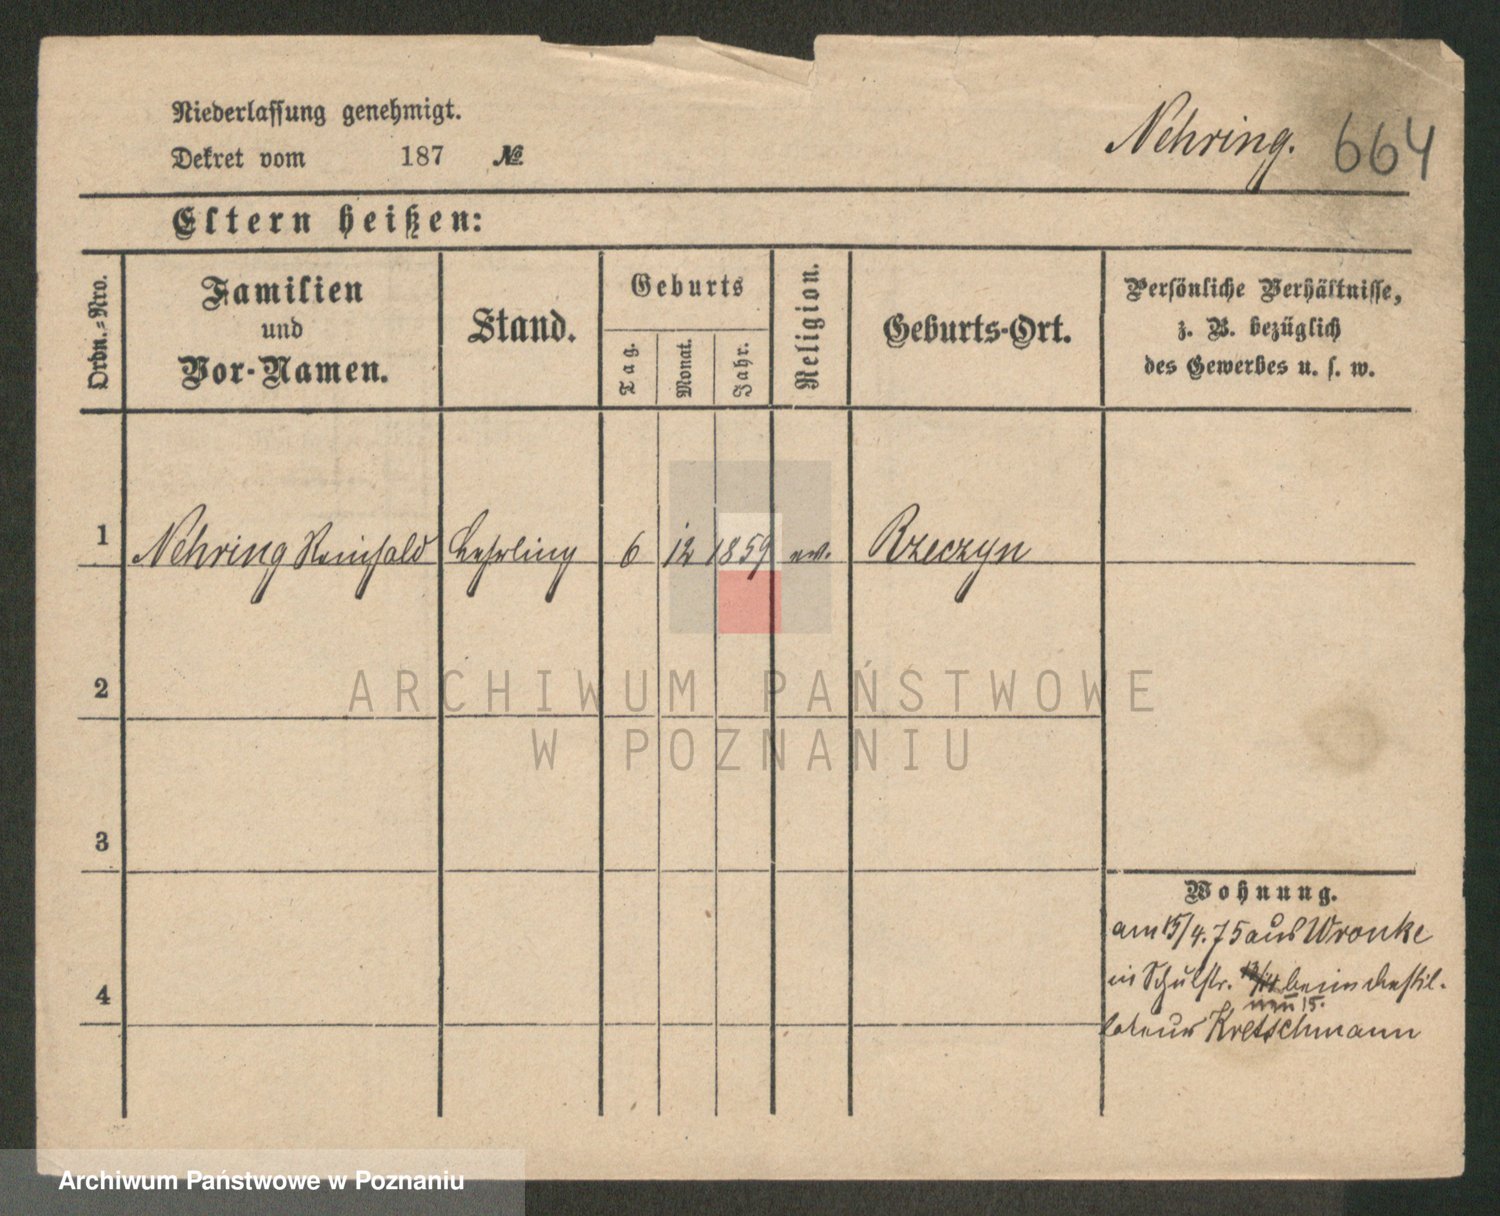 Niederlassung genehmigt.
Nehring. 664
Dekret vom 187 №
Eltern heißen:
Ordn.-Nro.
Familien und Vor-Namen.
Stand.
Geburts
Tag.
Monat.
Jahr.
Religion.
Geburts-Ort.
Persönliche Verhältnisse,
z. B. bezüglich
des Gewerbes u. s. w.
1 Nehring Reinhold Lehrling 6 12 1859 ev. Rzeczyn
2
3
4
Wohnung.
am 15/4. 75 aus Wronke
in Schulstr. 13/14 beim Destil-
neu 15.
lateur Kretschmann
ARCHIWUM PAŃSTWOWE
W POZNANIU
Archiwum Państwowe w Poznaniu